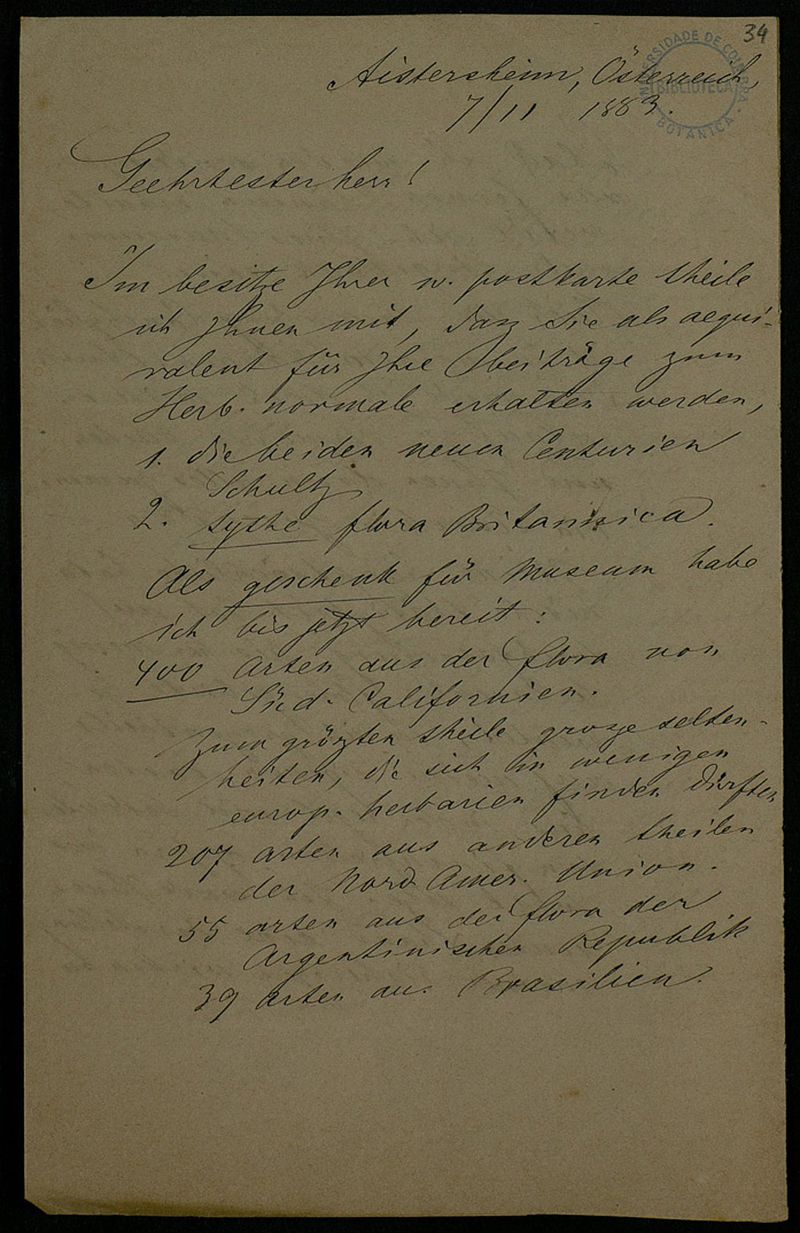 34
UNIVERSIDADE DE COIMBRA
BIBLIOTECA
BOTANICA
Aistersheim, Österreich,
7/11 1883.
Geehrtester herr!
Im besitze Ihrer w. postkarte theile
ich Ihnen mit, dasz Sie als aequi-
valent für Ihre beiträge zum
Herb. normale erhalten werden,
1. die beiden neuen Centurien
Schultz
2. flora Britannica.
Als geschenk für Museum habe
ich bis jetzt bereit:
400 arten aus der flora von
Süd-Californien.
Zum gröszten theile grosze selten-
heiten, die sich in wenigen
europ. herbarien finden dürften
207 arten aus anderen theilen
der Nord Amer. Union.
55 arten aus der flora der
Argentinischen Republik
39 arten aus Brasilien.